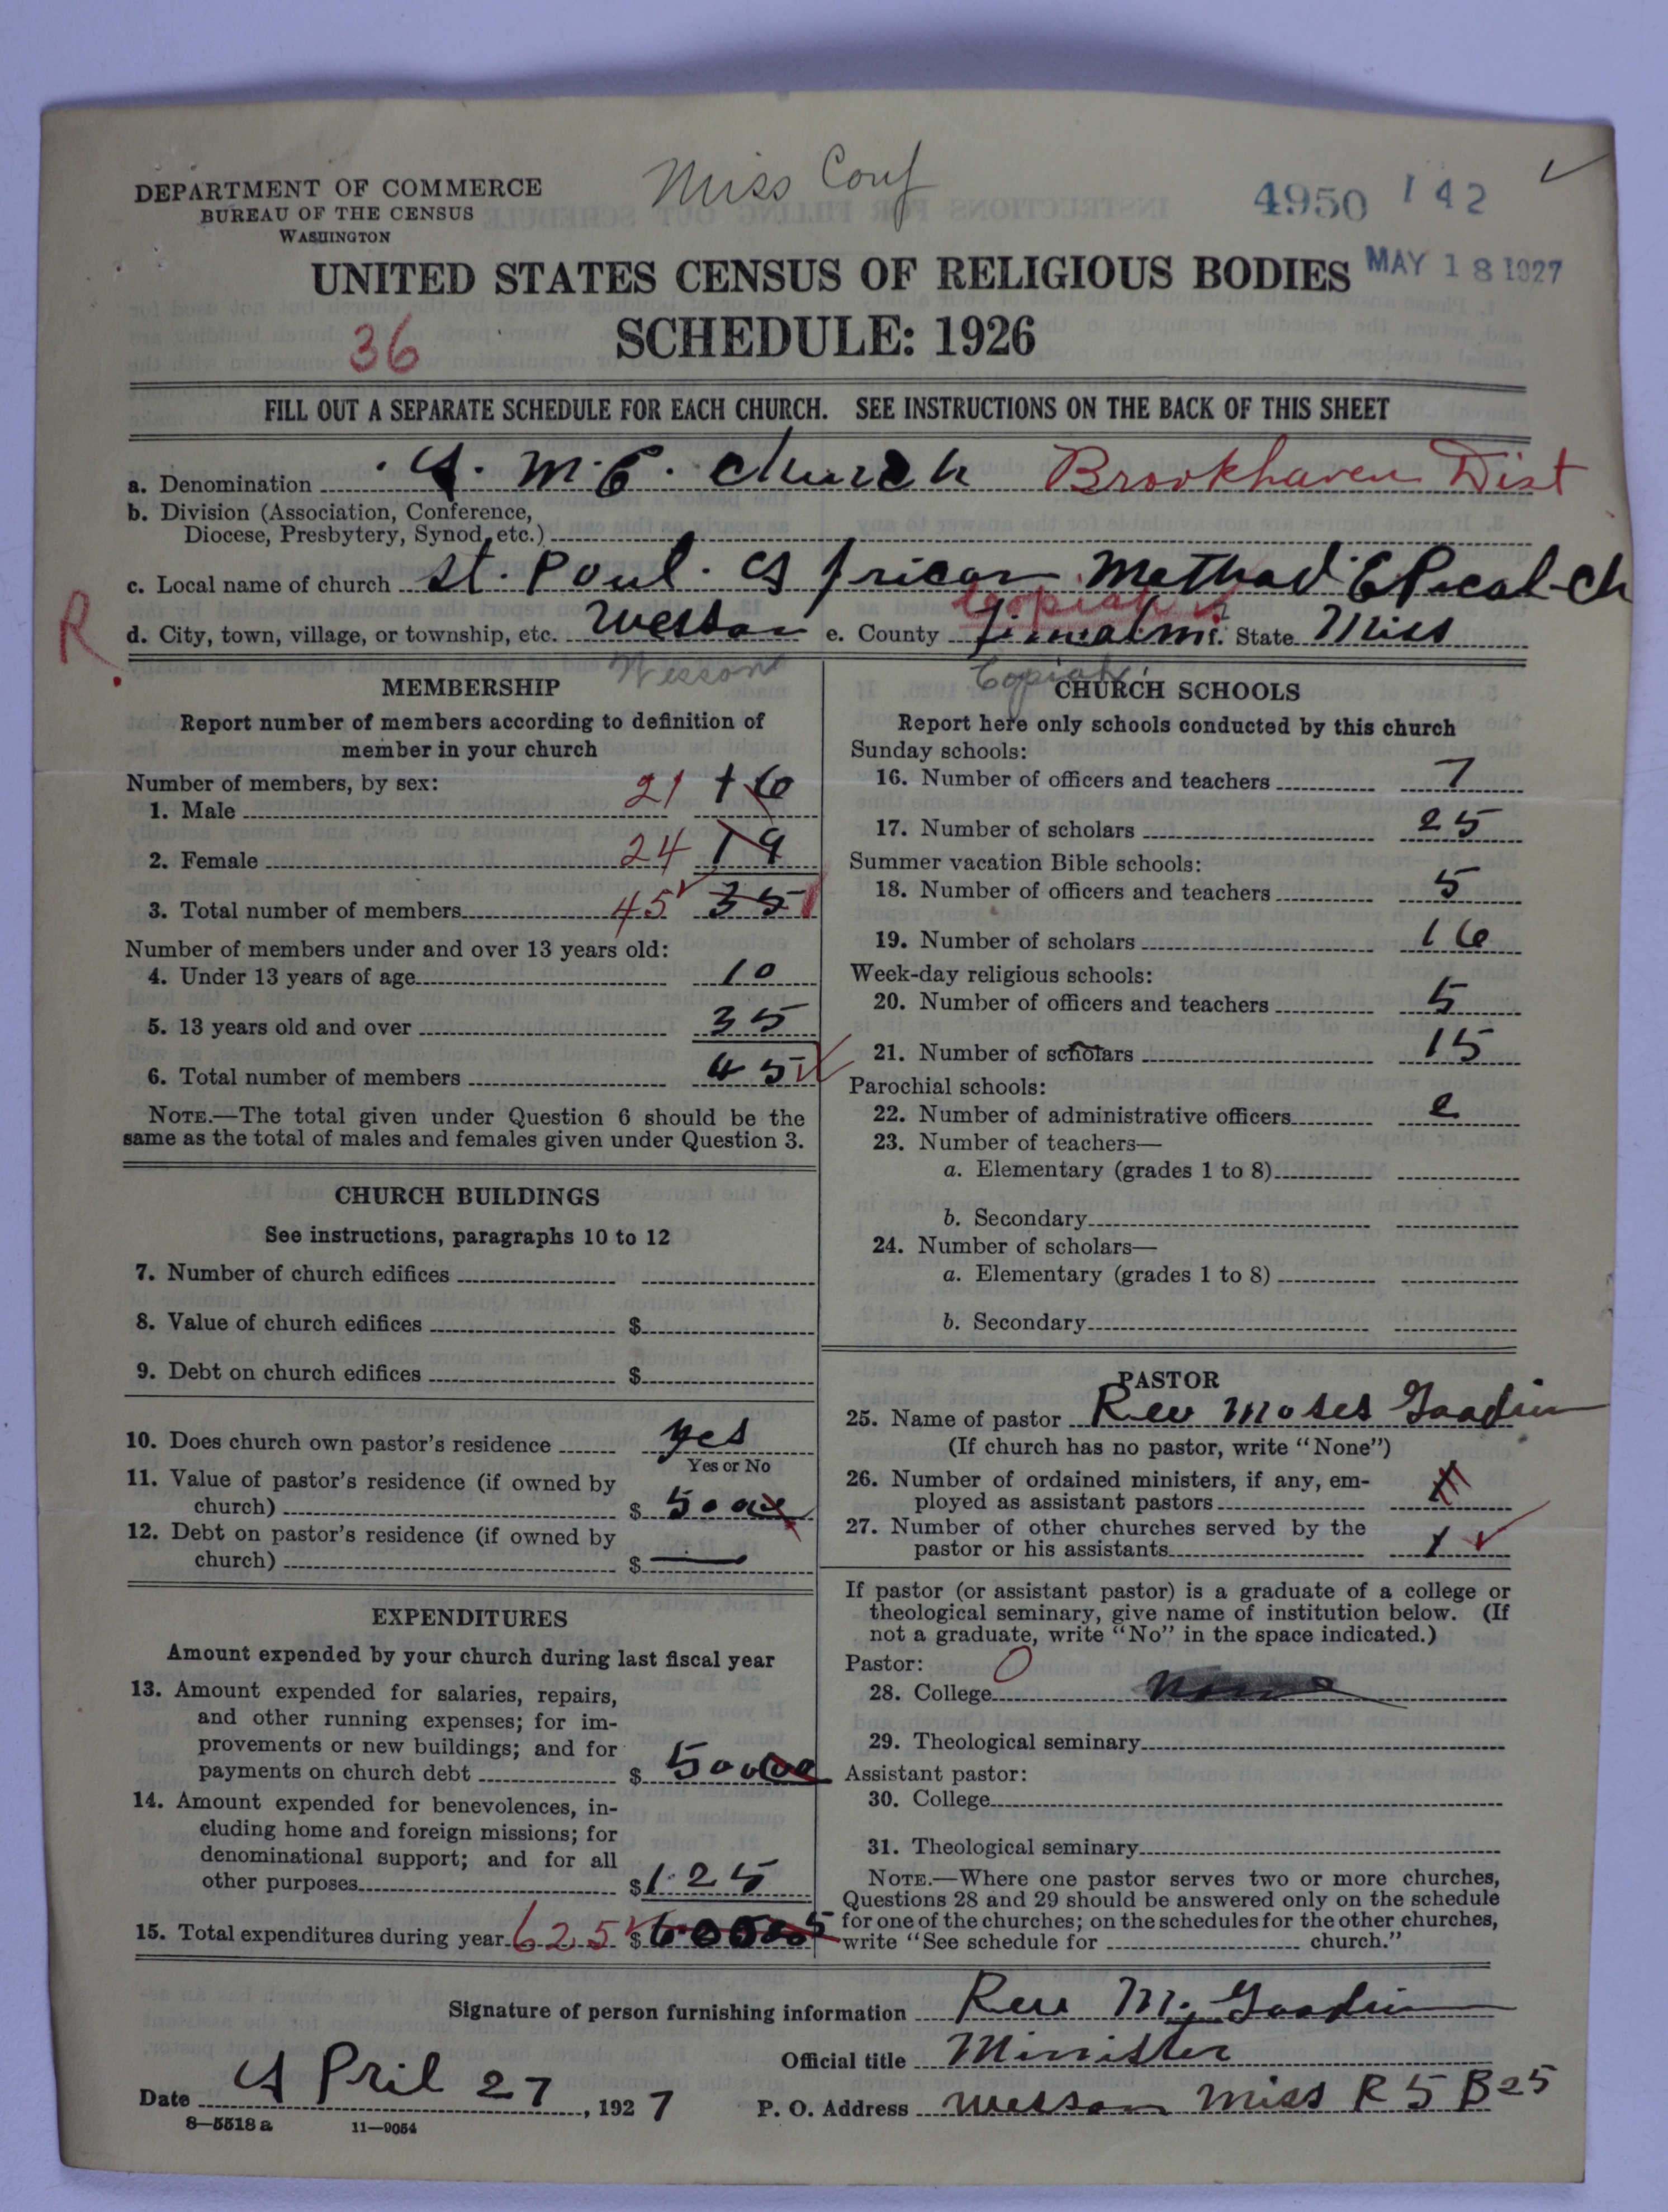 Miss Conf
DEPARTMENT OF COMMERCE
BUREAU OF THE CENSUS
WASHINGTON
4950 142
MAY 18 1927
UNITED STATES CENSUS OF RELIGIOUS BODIES
SCHEDULE: 1926
36
FILL OUT A SEPARATE SCHEDULE FOR EACH CHURCH. SEE INSTRUCTIONS ON THE BACK OF THIS SHEET
a. Denomination A. M. E. church Brookhaven Dist
b. Division (Association, Conference,
Diocese, Presbytery, Synod, etc.)
c. Local name of church St. Poul. African Methad EPical-ch
Copiah
R. d. City, town, village, or township, etc. Wesson e. County State Miss
Wesson Copiah
MEMBERSHIP
Report number of members according to definition of
member in your church
Number of members, by sex:
1. Male 21 16
2. Female 24 19
3. Total number of members 45 35
Number of members under and over 13 years old:
4. Under 13 years of age 10
5. 13 years old and over 35
6. Total number of members 45
NOTE.—The total given under Question 6 should be the
same as the total of males and females given under Question 3.
CHURCH BUILDINGS
See instructions, paragraphs 10 to 12
7. Number of church edifices
8. Value of church edifices $
9. Debt on church edifices $
10. Does church own pastor's residence yes
Yes or No
11. Value of pastor's residence (if owned by
church) $ 500
12. Debt on pastor's residence (if owned by
church) $ —
EXPENDITURES
Amount expended by your church during last fiscal year
13. Amount expended for salaries, repairs,
and other running expenses; for im-
provements or new buildings; and for
payments on church debt $ 50000
14. Amount expended for benevolences, in-
cluding home and foreign missions; for
denominational support; and for all
other purposes $ 125
15. Total expenditures during year 625 $
CHURCH SCHOOLS
Report here only schools conducted by this church
Sunday schools:
16. Number of officers and teachers 7
17. Number of scholars 25
Summer vacation Bible schools:
18. Number of officers and teachers 5
19. Number of scholars 16
Week-day religious schools:
20. Number of officers and teachers 5
21. Number of scholars 15
Parochial schools:
22. Number of administrative officers
23. Number of teachers—
a. Elementary (grades 1 to 8)
b. Secondary
24. Number of scholars—
a. Elementary (grades 1 to 8)
b. Secondary
PASTOR
25. Name of pastor Rev Moses Goodin
(If church has no pastor, write "None")
26. Number of ordained ministers, if any, em-
ployed as assistant pastors
27. Number of other churches served by the
pastor or his assistants 1
If pastor (or assistant pastor) is a graduate of a college or
theological seminary, give name of institution below. (If
not a graduate, write "No" in the space indicated.)
Pastor: 0
28. College None
29. Theological seminary
Assistant pastor:
30. College
31. Theological seminary
NOTE.—Where one pastor serves two or more churches,
Questions 28 and 29 should be answered only on the schedule
for one of the churches; on the schedules for the other churches,
write "See schedule for church."
Signature of person furnishing information Rev M. Goodin
Official title Minister
Date April 27, 1927 P. O. Address Wesson Miss R 5 B 25
8—5518 a 11—9054